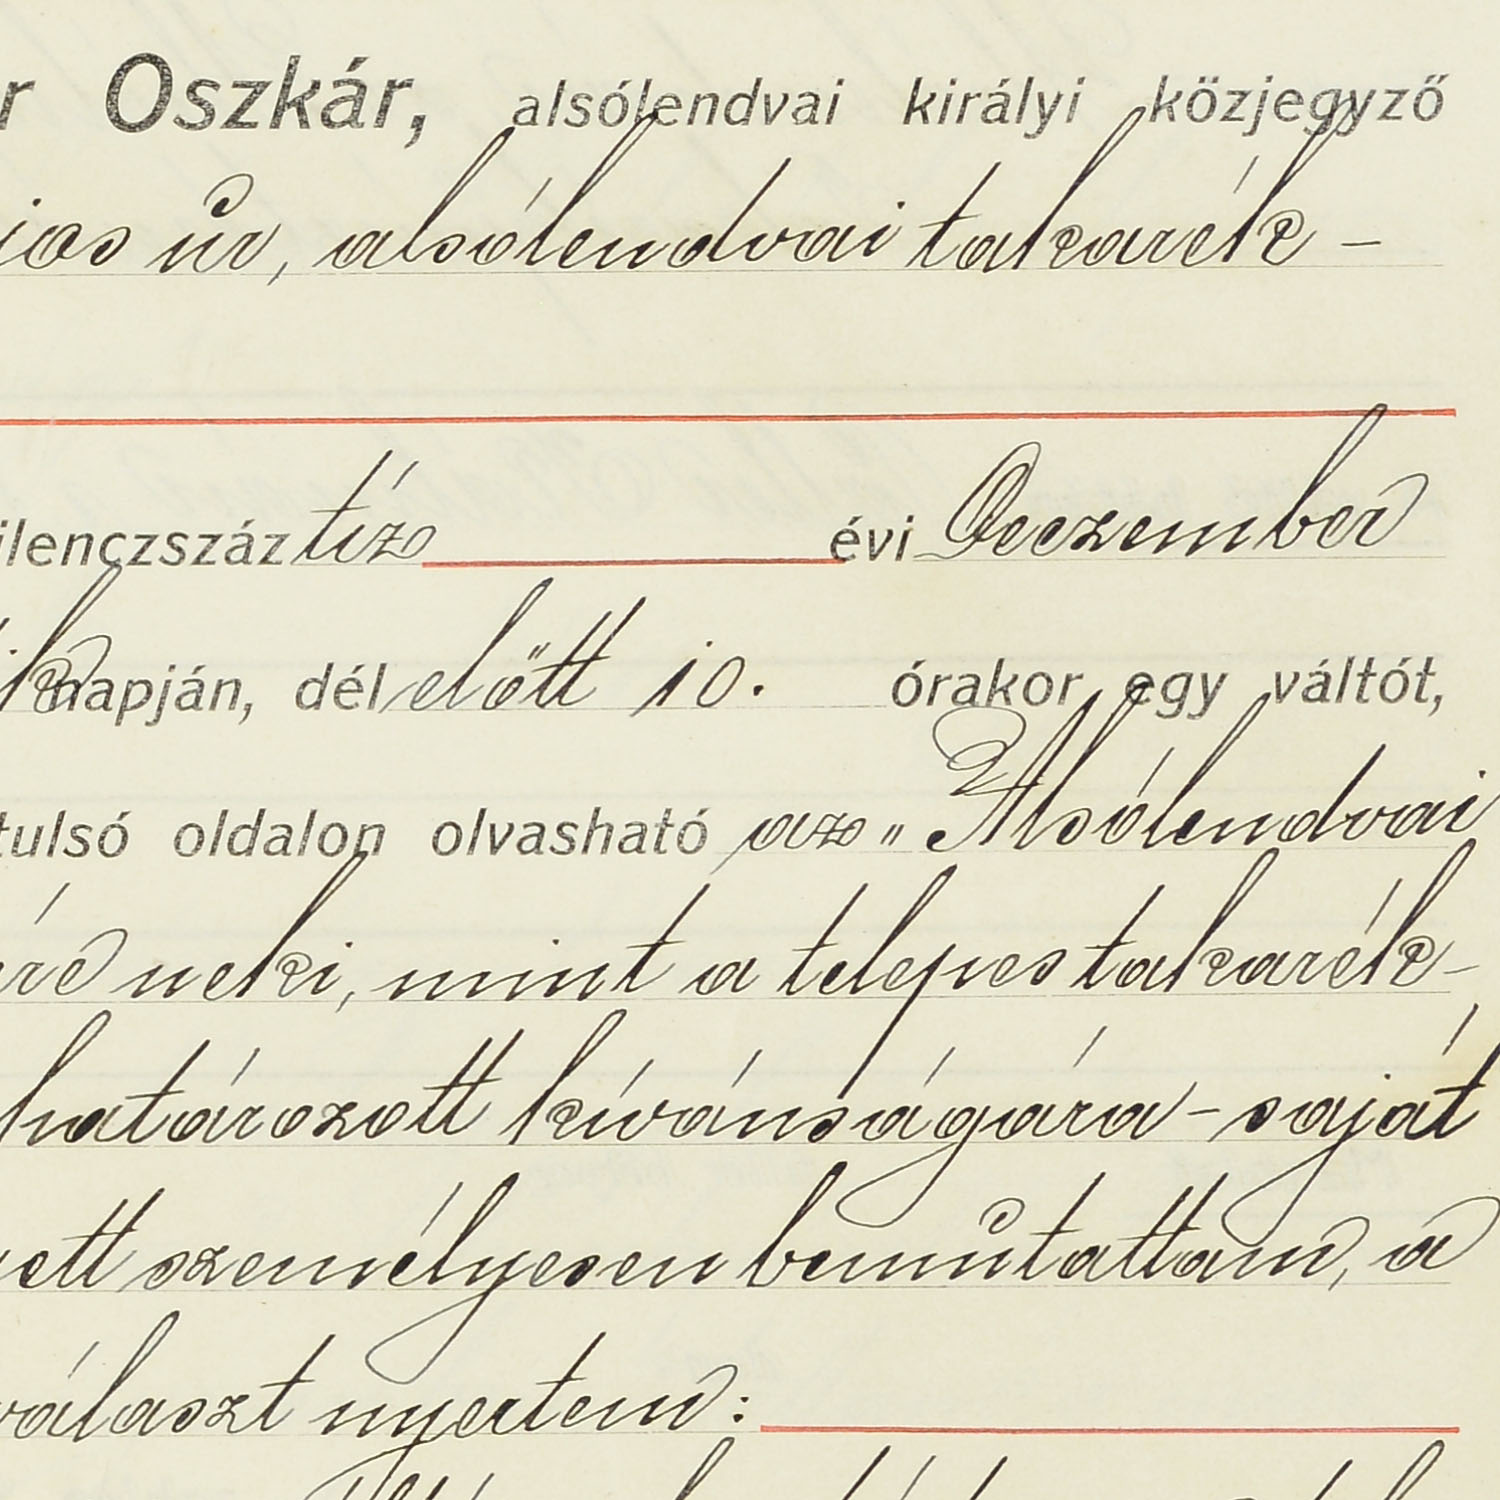 r Oszkár, alsólendvai királyi közjegyző
jos úr, alsólendvai takarék-
ilenczszáz tíz évi Deczember
ik napján, délelőtt 10. órakor egy váltót,
tulsó oldalon olvasható az „Alsólendvai
neki, mint a telepes takarék-
határozott kívánságára - saját
ett személyesen bemutattam, a
választ nyertem: